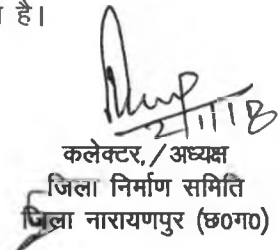 है।
2/11/18
कलेक्टर,/अध्यक्ष
जिला निर्माण समिति
जिला नारायणपुर (छ०ग०)